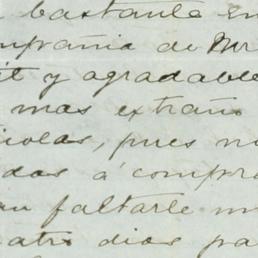 bastante en
mpañia de Mr
it y agradable
mas extraño
icolas, pues no
dos á compra
au faltarle un
atro dias pa